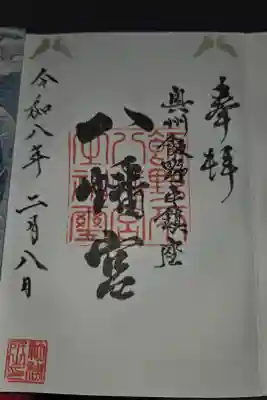 奉拝
奥州飯野平鎮座
八幡宮
令和八年二月八日